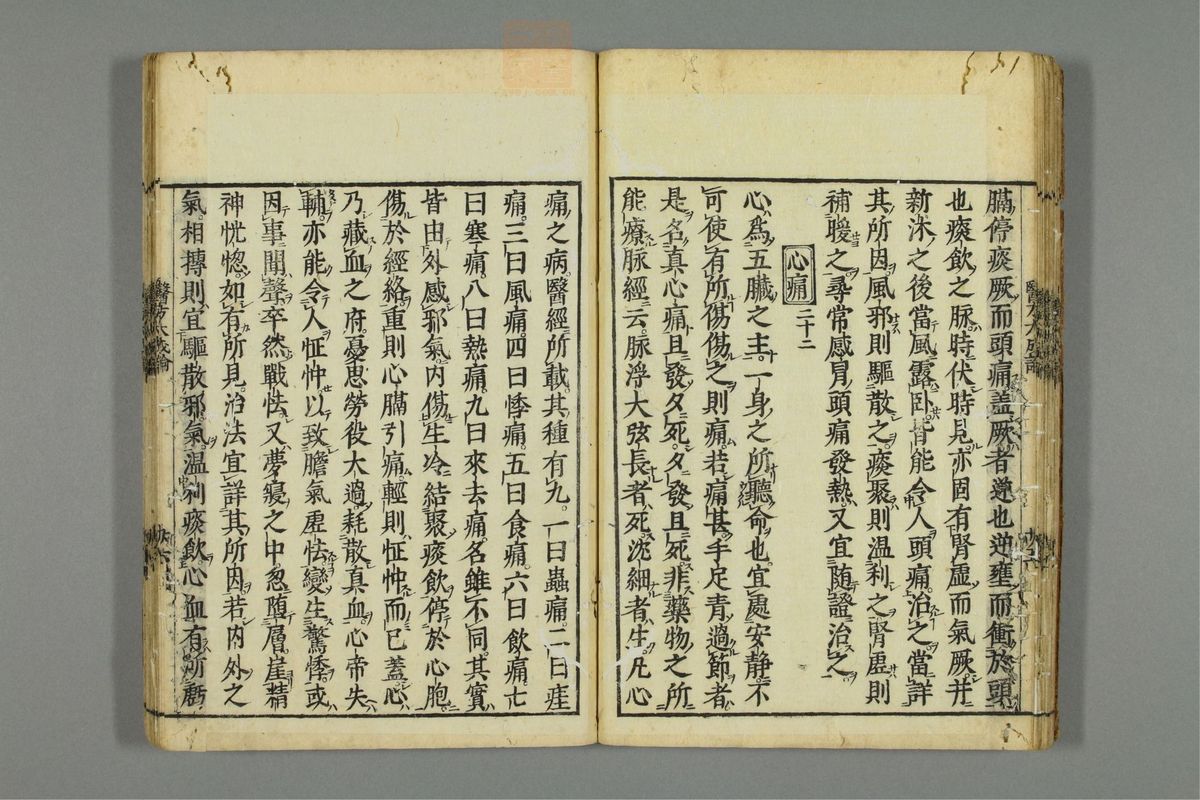 膈停痰厥而頭痛蓋厥者逆也逆壅而衝於頭
也痰飲之脉時伏時見亦固有腎虛而氣厥并
新沐之後當風露卧皆能令人頭痛治之當詳
其所因風邪則驅散之痰聚則温利之腎虛則
補暖之尋常感冐頭痛發熱又宜随證治之
心痛 二十二
心爲五臟之主一身之所聽命也宜處安静不
可使有所傷傷之則痛若痛甚手足青過節者
是名真心痛且發夕死夕發且死非藥物之所
能療脉經云脉浮大弦長者死沈細者生凡心
痛之病醫經所載其種有九一曰蟲痛二曰疰
痛三曰風痛四曰悸痛五曰食痛六曰飲痛七
曰寒痛八曰熱痛九曰來去痛名雖不同其實
皆由外感邪氣内傷生冷結聚痰飲停於心胞
傷於經絡重則心膈引痛輕則怔忡而已蓋心
乃藏血之府憂思勞役大過耗散真血心帝失
輔亦能令人怔忡以致膽氣虛怯變生驚悸或
因事聞聲卒然戰怯又夢寢之中忽墮層崖精
神恍惚如有所見治法宜詳其所因若内外之
氣相搏則宜驅散邪氣温利痰飲心血有所虧
醫方大成論